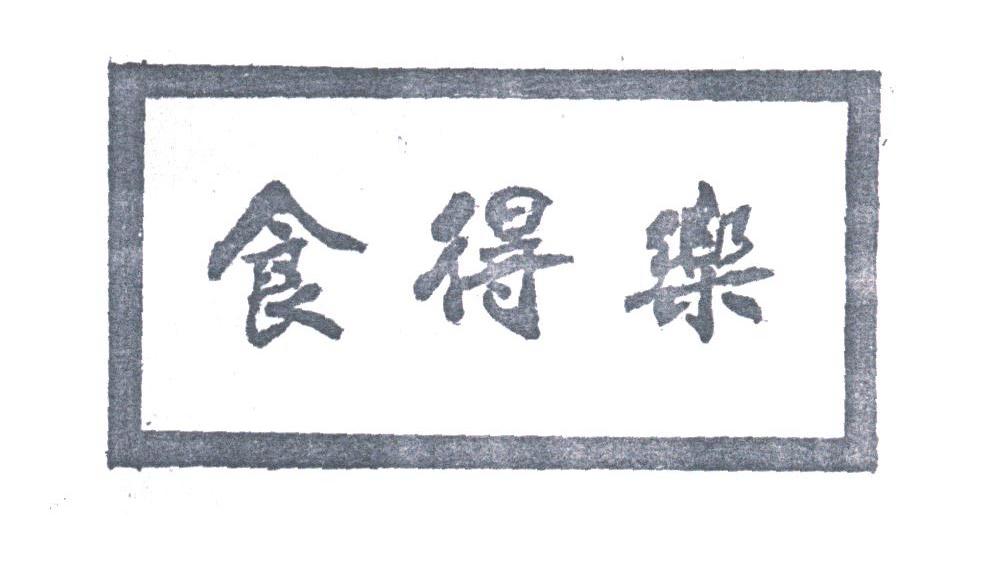 食得樂